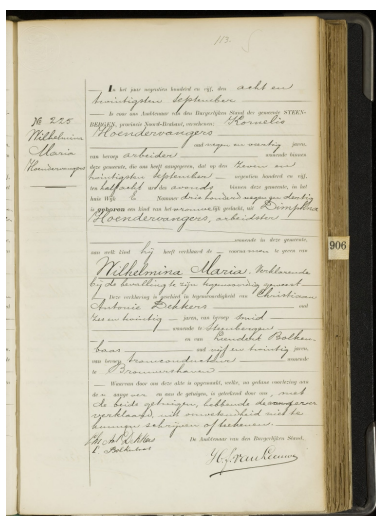 113
In het jaar negentien honderd en vijf, den acht en
twintigsten September
is voor ons Ambtenaar van den Burgerlijken Stand der gemeente STEEN-
BERGEN, provincie Noord-Brabant, verschenen: Kornelis
Hoendervangers
oud negen en veertig jaren,
van beroep arbeider wonende binnen
deze gemeente, die ons heeft aangegeven, dat op den zeven en
twintigsten September negentien honderd en vijf,
ten half acht ure des avonds binnen deze gemeente, in het
huis Wijk Nummer drie honderd negen en dertig
is geboren een kind van het vrouwelijk geslacht, uit Dimphna
Hoendervangers, arbeidster
wonende in deze gemeente,
aan welk kind hij heeft verklaard de voornamen te geven van
Wilhelmina Maria, verklarende
bij de bevalling te zijn tegenwoordig geweest
Deze verklaring is geschied in tegenwoordigheid van Christiaan
Antonie Dekkers oud
zes en twintig jaren, van beroep smid
wonende te Steenbergen
en van Leendert Bolken-
baas oud vijf en twintig jaren,
van beroep tramconducteur wonende
te Brouwershaven
Waarvan door ons deze akte is opgemaakt, welke, na gedane voorlezing aan
den aangever en aan de getuigen, is geteekend door ons, met
de beide getuigen, hebbende de aangever
verklaard, uit onwetendheid niet te
kunnen schrijven of teekenen.
De Ambtenaar van den Burgerlijken Stand,
Chr. Ant. Dekkers
L. Bolkenbaas
No 225
Wilhelmina
Maria
Hoendervangers
906